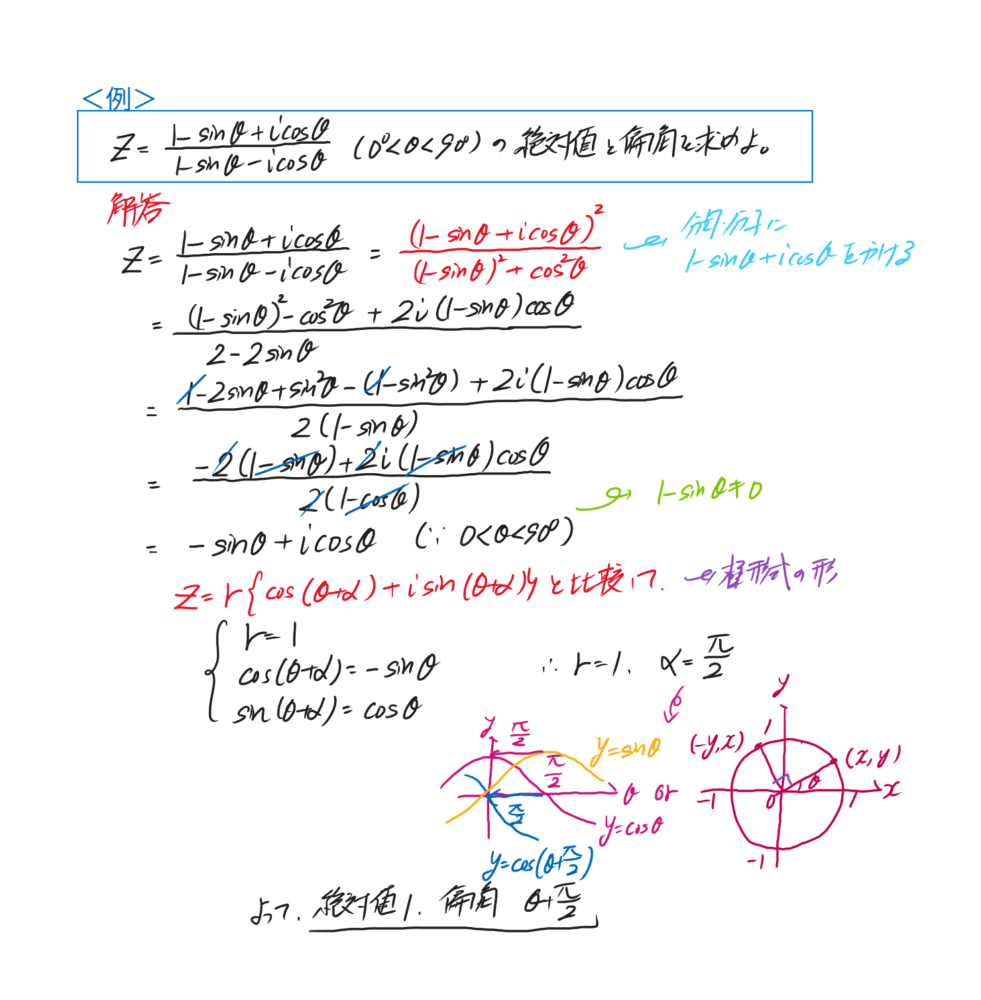 ＜例＞
Z = (1-sinθ+icosθ)/(1-sinθ-icosθ) (0°<θ<90°) の 絶対値と偏角を求めよ。
解答
Z = (1-sinθ+icosθ)/(1-sinθ-icosθ) = (1-sinθ+icosθ)²/((1-sinθ)²+cos²θ) 分母・分子に
1-sinθ+icosθをかける
= ((1-sinθ)²-cos²θ+2i(1-sinθ)cosθ)/(2-2sinθ)
= (1-2sinθ+sin²θ-(1-sin²θ)+2i(1-sinθ)cosθ)/(2(1-sinθ))
= (-2(1-sinθ)+2i(1-sinθ)cosθ)/(2(1-cosθ)) 1-sinθ≠0
= -sinθ+icosθ (∵ 0<θ<90°)
Z=r{cos(θ+α)+isin(θ+α)}と比較して. 極形式の形
r=1
cos(θ+α)=-sinθ ∴ r=1. α=π/2
sin(θ+α)=cosθ
y π/2 y=sinθ
π/2 θ or
π/2 y=cosθ
y=cos(θ+π/2)
y
(-y,x) 1 (x,y)
-1 0 θ 1 x
-1
よって、絶対値1. 偏角 θ+π/2